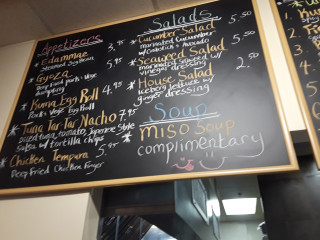 Appetizers
* Edamame 3.95
Steamed Soy Bean
* Gyoza 5.95
Deep Fried Pork + Vege
Dumpling
* Kuma Egg Roll 4.95
Pork + Vege Egg Roll
* Tuna Tar Tar Nacho 7.95
diced tuna, tomato, Japanese Style
Salsa w/ tortilla chips
* Chicken Tempura 5.95
Deep Fried Chicken Finger
Salads
* Cucumber Salad 5.50
marinated Cucumber
w/ Crabstick + Avocado
* Seaweed Salad 5.50
marinated seaweed w/
vinegar dressing
* House Salad 2.50
iceberg lettuce w/
ginger dressing
Soup
* miso Soup
complimentary